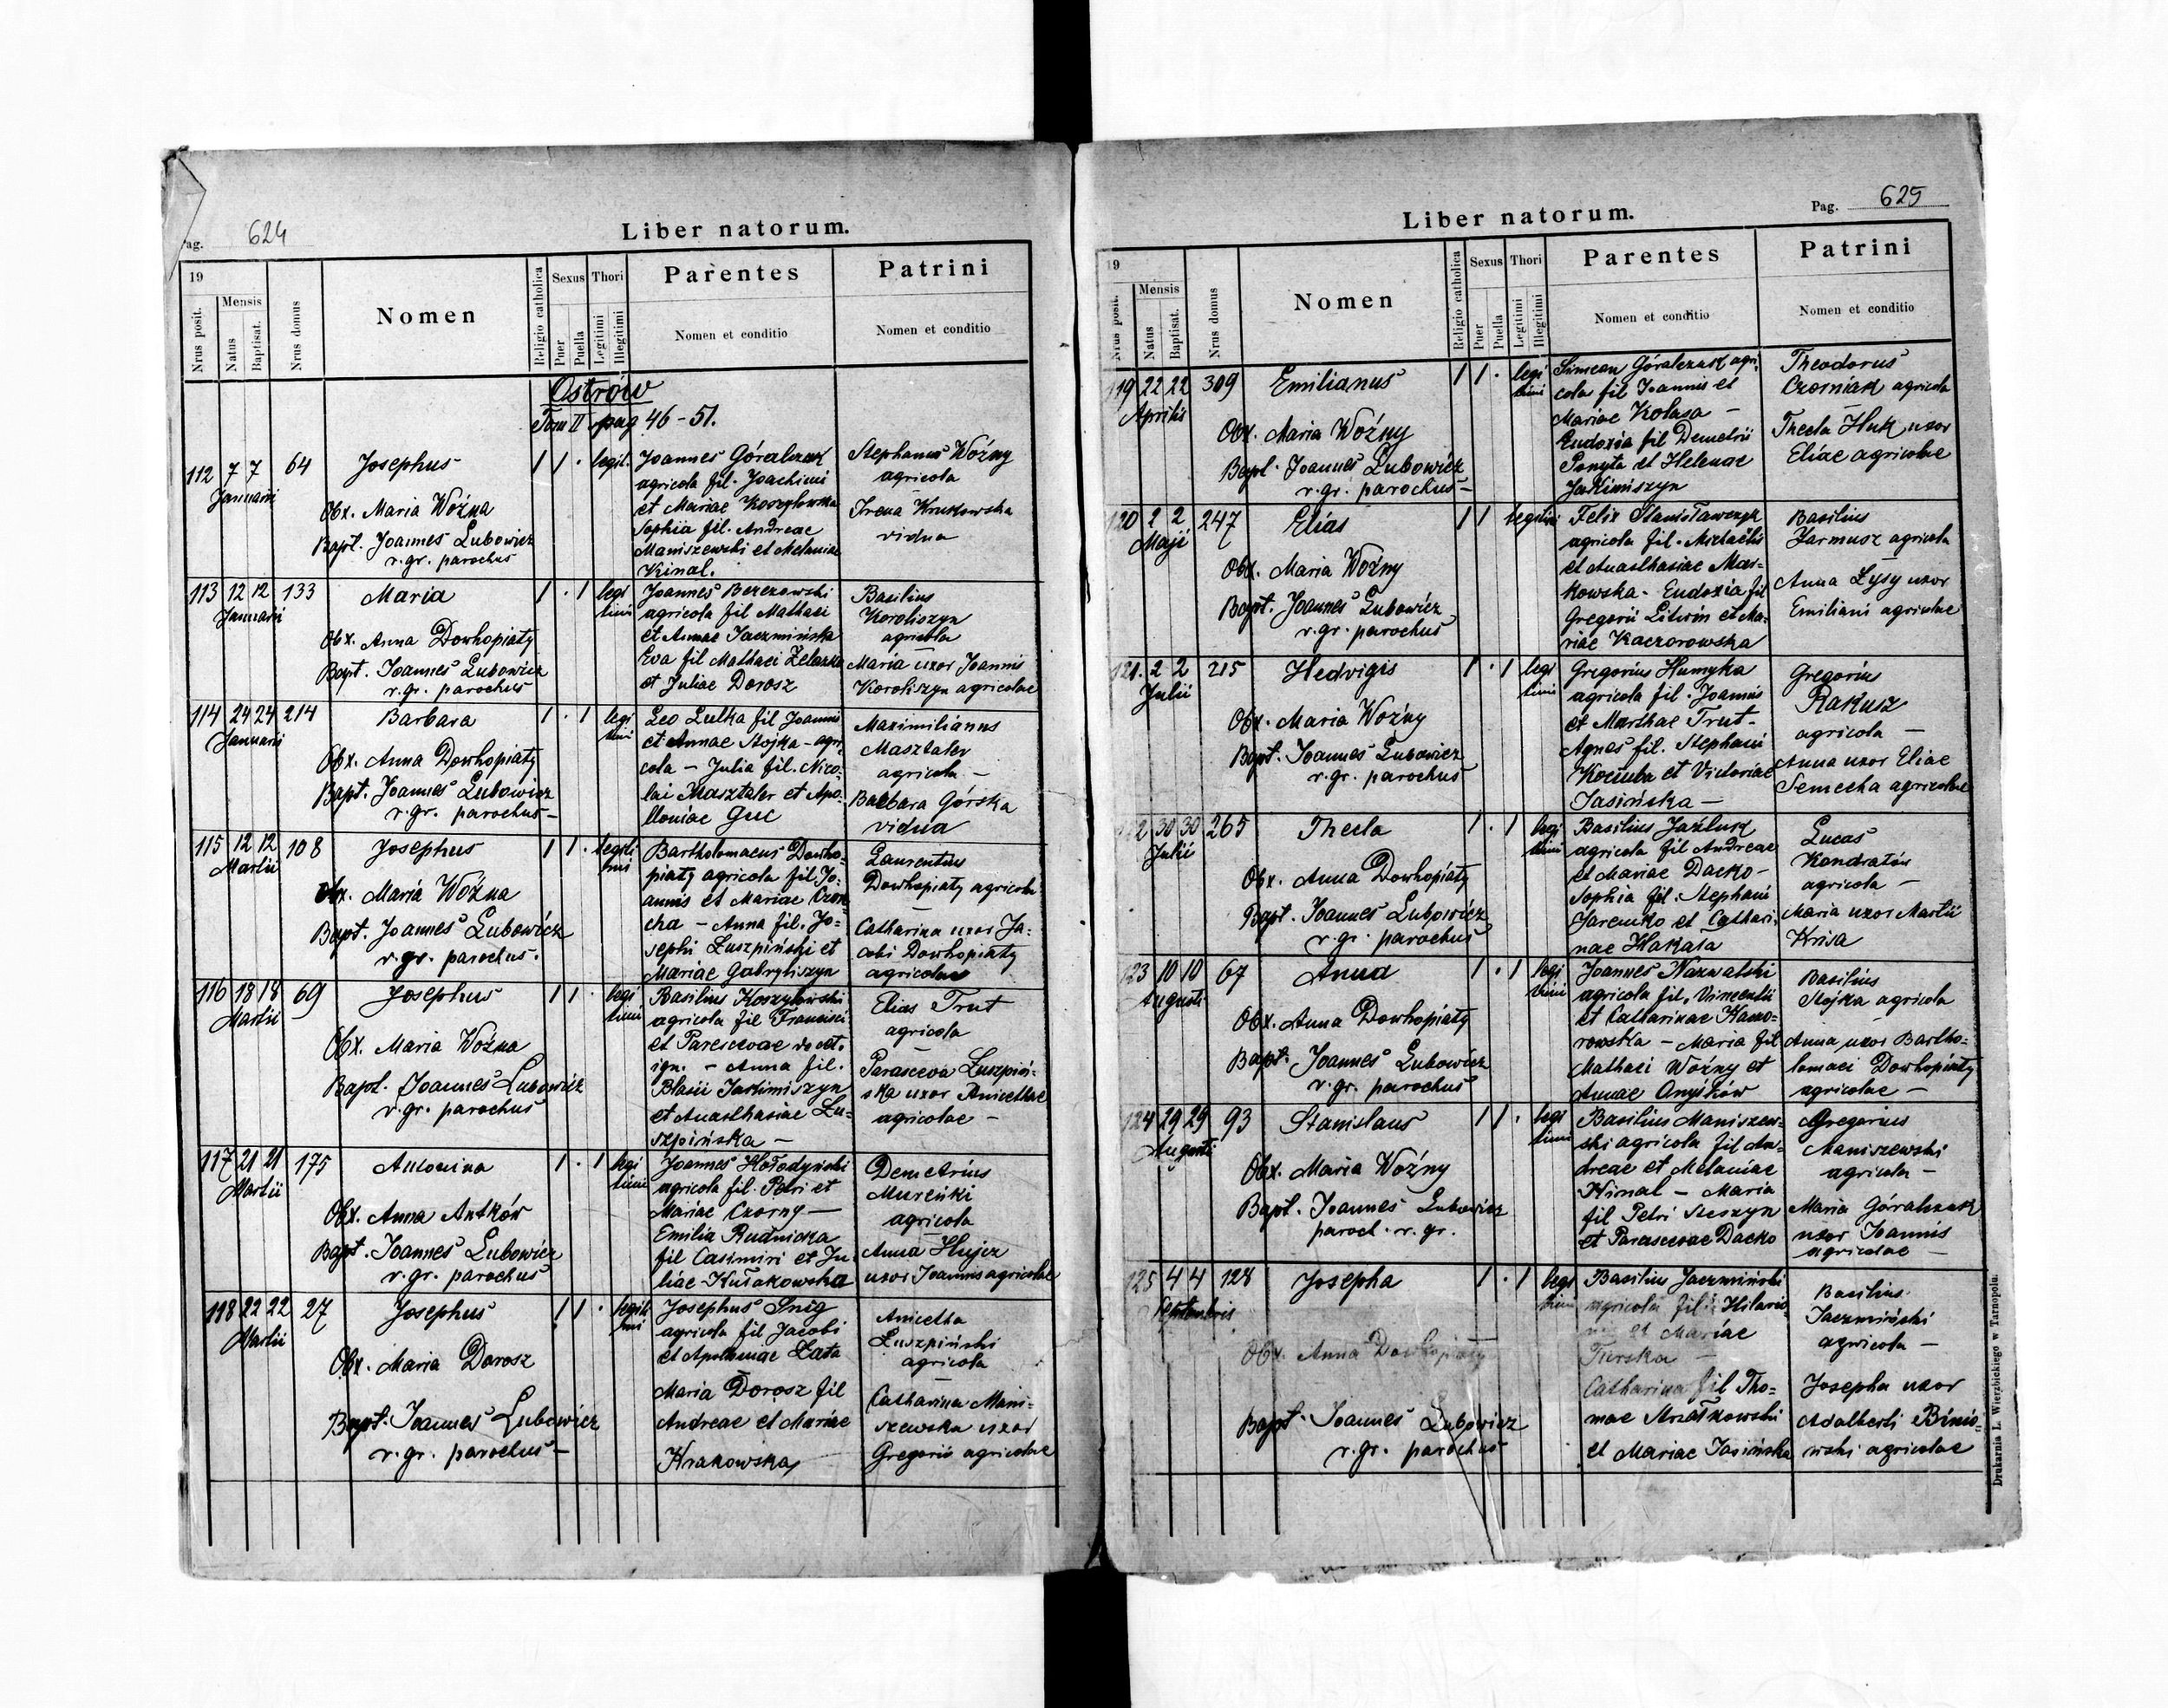 Pag. 624
Liber natorum.
19
Nrus posit.
Mensis
Natus
Baptisat.
Nrus domus
Nomen
Religio catholica
Sexus
Puer
Puella
Thori
Legitimi
Illegitimi
Parentes
Nomen et conditio
Patrini
Nomen et conditio
Ostrów
Tom II pag 46-51.
112 7 7 Januarii 64 Josephus 1 1 · legit.
Obx. Maria Woźna
Bapt. Joannes Lubowicz
r. gr. parochus
Joannes Góralczuk
agricola fil. Joachimi
et Mariae Koszylowska
Sophia fil. Andreae
Maniszewski et Melaniae
Kinal.
Stephanus Woźny
agricola
Irena Krukowska
vidua
113 12 12 Januarii 133 Maria 1 · 1 legitimi
Obx. Anna Dowhopiaty
Bapt. Joannes Lubowicz
r. gr. parochus
Joannes Berezowski
agricola fil Mathaei
et Annae Jaczmińska
Eva fil Mathaei Zelazko
et Juliae Dorosz
Basilius
Koroliszyn
agricola
Maria uxor Joannis
Koroliszyn agricolae
114 24 24 Januarii 214 Barbara 1 · 1 legitimi
Obx. Anna Dowhopiaty
Bapt. Joannes Lubowicz
r. gr. parochus –
Leo Lulka fil Joannis
et Annae Stojka – agri-
cola – Julia fil. Nico-
lai Masztaler et Apo-
lloniae Guc
Maximilianus
Masztaler
agricola –
Barbara Górska
vidua
115 12 12 Martii 108 Josephus 1 1 · legitimi
Obx. Maria Woźna
Bapt. Joannes Lubowicz
r. gr. parochus.
Bartholomaeus Dowho-
piaty agricola fil. Jo-
annis et Mariae
cha – Anna fil. Jo-
sephi Łuszpiński et
Mariae Gabryliszyn
Laurentius
Dowhopiaty agricola
Catharina uxor Ja-
cobi Dowhopiaty
agricolae
116 18 18 Martii 69 Josephus 1 1 · legitimi
Obx. Maria Woźna
Bapt. Joannes Lubowicz
r. gr. parochus
Basilius Koszylowski
agricola fil Francisci
et Parascevae de cet.
ign. – Anna fil.
Blasii Jakimiszyn
et Anasthasiae Łu-
szpińska –
Elias Trut
agricola
Parasceva Łuszpiń-
ska uxor Anicethae
agricolae –
117 21 21 Martii 175 Antonina 1 · 1 legitimi
Obx. Anna Antków
Bapt. Joannes Lubowicz
r. gr. parochus
Joannes Hołodyński
agricola fil. Petri et
Mariae Czorny –
Emilia Rudnicka
fil Casimiri et Ju-
liae Kułakowska
Demetrius
Mureńki
agricola
Anna Hujcz
uxor Joannis agricolae
118 22 22 Martii 27 Josephus 1 1 · legitimi
Obx. Maria Dorosz
Bapt. Joannes Lubowicz
r. gr. parochus –
Josephus Snig
agricola fil Jacobi
et Apoloniae Łata
Maria Dorosz fil
Andreae et Mariae
Krakowska
Anicetha
Łuszpiński
agricola
Catharina Mani-
szewska uxor
Gregorii agricolae
Pag. 625
Liber natorum.
19
Nrus posit.
Mensis
Natus
Baptisat.
Nrus domus
Nomen
Religio catholica
Sexus
Puer
Puella
Thori
Legitimi
Illegitimi
Parentes
Nomen et conditio
Patrini
Nomen et conditio
119 22 22 Aprilis 309 Emilianus 1 1 · legitimi
Obx. Maria Woźny
Bapt. Joannes Lubowicz
r. gr. parochus –
Simeon Góralczuk agri-
cola fil Joannis et
Mariae Kolasa –
Eudoxia fil Demetrii
Ponyta et Helenae
Jakimiszyn
Theodorus
Czorniak agricola
Thecla Huk uxor
Eliae agricolae
120 2 2 Maji 247 Elias 1 1 legitimi
Obx. Maria Woźny
Bapt. Joannes Lubowicz
r. gr. parochus
Felix Stanisławczyk
agricola fil. Michaelis
et Anasthasiae Mas-
kowska – Eudoxia fil
Gregorii Litwin et Ma-
riae Kaczorowska
Basilius
Żarmusz agricola
Anna Łysy uxor
Emiliani agricolae
121. 2 2 Julii 215 Hedvigis 1 · 1 legitimi
Obx. Maria Woźny
Bapt. Joannes Lubowicz
r. gr. parochus
Gregorius Humyka
agricola fil. Joannis
et Marthae Trut –
Agnes fil. Stephani
Kociuba et Victoriae
Jasińska –
Gregorius
Rakusz
agricola –
Anna uxor Eliae
Semecha agricolae
122 30 30 Julii 265 Thecla 1 · 1 legitimi
Obx. Anna Dowhopiaty
Bapt. Joannes Lubowicz
r. gr. parochus
Basilius Jaźluk
agricola fil Andreae
et Mariae Dacko –
Sophia fil. Stephani
Jaremko et Cathari-
nae Hakała
Lucas
Kondratów
agricola –
Maria uxor Martii
Krisa
123 10 10 Augusti 67 Anna 1 · 1 legitimi
Obx. Anna Dowhopiaty
Bapt. Joannes Lubowicz
r. gr. parochus
Joannes Nazwalski
agricola fil. Vincentii
et Catharinae Komo-
rowska – Maria fil
Mathaei Woźny et
Annae Onyśków
Basilius
Stojka agricola
Anna uxor Bartho-
lomaei Dowhopiaty
agricolae –
124 29 29 Augusti 93 Stanislaus 1 1 · legitimi
Obx. Maria Woźny
Bapt. Joannes Lubowicz
paroch. r. gr.
Basilius Maniszew-
ski agricola fil An-
dreae et Melaniae
Kinal – Maria
fil Petri Steszyn
et Parascevae Dacko
Gregorius
Maniszewski
agricola –
Maria Góralczuk
uxor Joannis
agricolae –
125 4 4 Septembris 128 Josepha 1 · 1 legitimi
Obx. Anna Dowhopiaty
Bapt. Joannes Lubowicz
r. gr. parochus
Basilius Jaczmiński
agricola fil. Hilario-
nis et Mariae
Turska –
Catharina fil Tho-
mae Strzałkowski
et Mariae Jasińska
Basilius
Jaczmiński
agricola –
Josepha uxor
Adalberti Binio-
wski agricolae
Drukarnia L. Wierzbickiego w Tarnopolu.